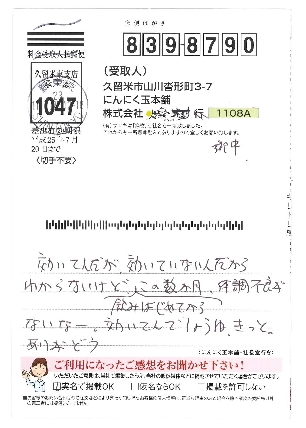 郵便はがき
8398790
料金受取人払郵便
久留米東支店
承認
1047
差出有効期間
平成25年7月
20日まで
(切手不要)
(受取人)
久留米市山川沓形町3-7
にんにく玉本舗
株式会社
行
1108A
御中
効いてんだか、効いていないんだから
わからないけど、この数か月、体調不良が
飲みはじめてから
ないなー。効いてんでしょうゆきっと。
ありがとう
ご利用になったご感想をお聞かせ下さい!
☑実名で掲載OK □仮名ならOK □掲載を許可しない